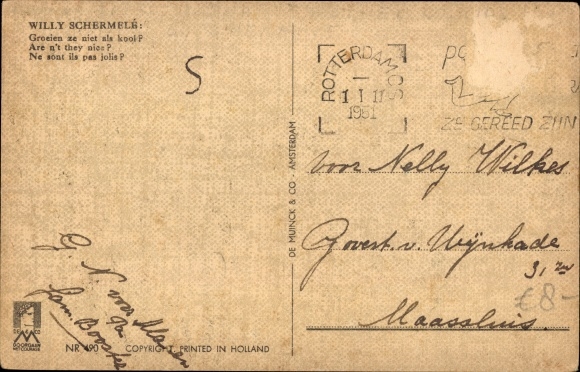 WILLY SCHERMELÉ:
Groeien ze niet als kool?
Are n't they nice?
Ne sont ils pas jolis?
S
ROTTERDAM CS
1951
ZE GEREED ZIJN
DE MUINCK & CO - AMSTERDAM
voor Nelly Wilkes
Govert. v. Wijnkade
31
€8-
Maassluis.
G. N. voor
Fam.
DOORGAAN
MET COURAGE
NR 490
COPYRIGHT, PRINTED IN HOLLAND